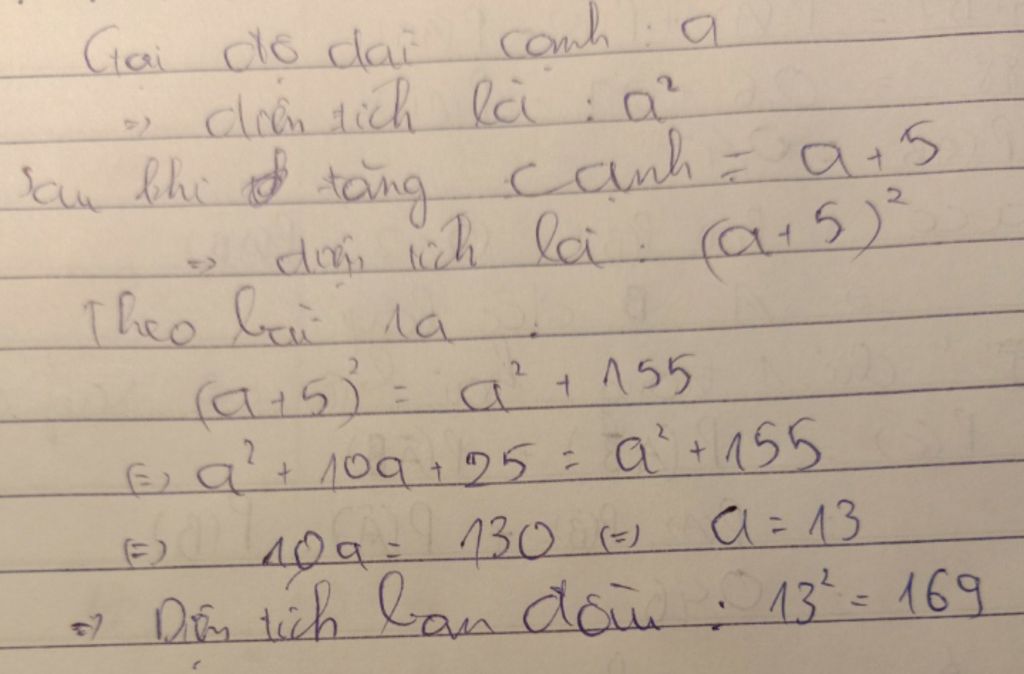 Gọi độ dài cạnh : a
=> diện tích là : a²
Sau khi tăng cạnh = a + 5
=> diện tích là : (a + 5)²
Theo bài ra :
(a + 5)² = a² + 155
(=) a² + 10a + 25 = a² + 155
(=) 10a = 130 (=) a = 13
=> Diện tích ban đầu : 13² = 169